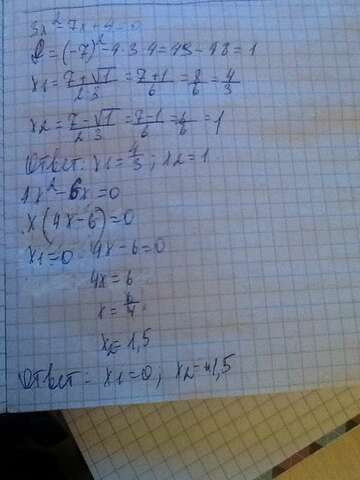 3x²-7x+4=0
D=(-7)²-4·3·4=49-48=1
x1=(7+√1)/(2·3)=(7+1)/6=8/6=4/3
x2=(7-√1)/(2·3)=(7-1)/6=6/6=1
Ответ: x1=4/3; x2=1
4x²-6x=0
x(4x-6)=0
x1=0 4x-6=0
4x=6
x=6/4
x2=1,5
Ответ: x1=0; x2=1,5